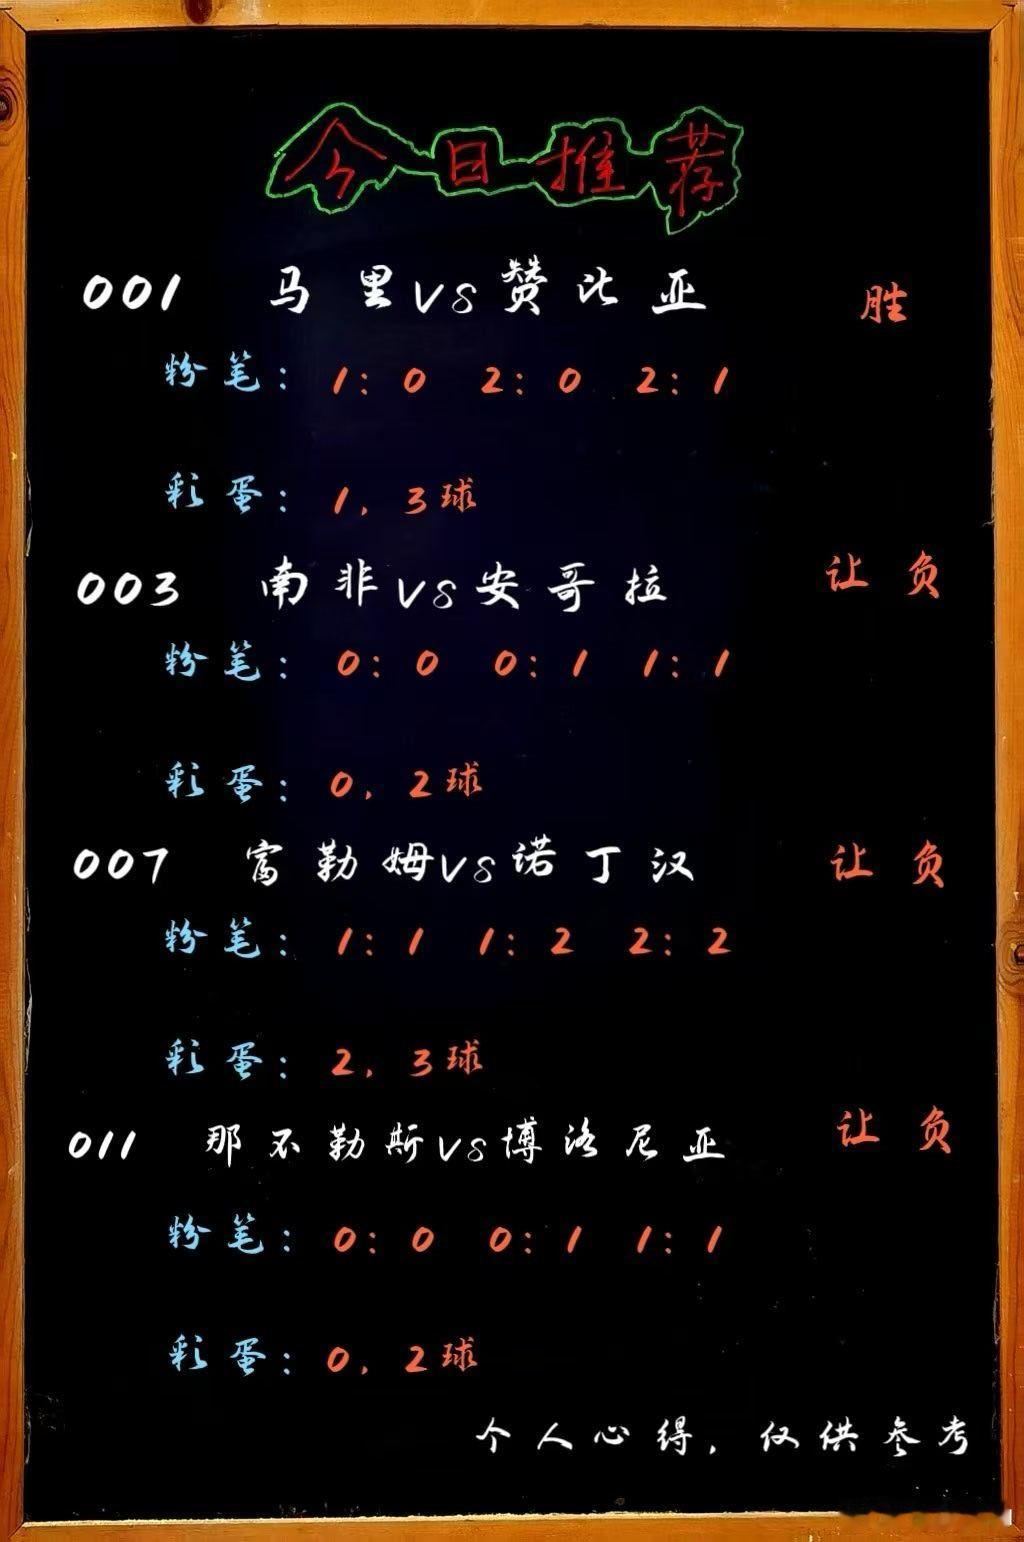 今日推荐
001 马里vs赞比亚 胜
粉笔: 1:0 2:0 2:1
彩蛋: 1,3球
003 南非vs安哥拉 让负
粉笔: 0:0 0:1 1:1
彩蛋: 0,2球
007 富勒姆vs诺丁汉 让负
粉笔: 1:1 1:2 2:2
彩蛋: 2,3球
011 那不勒斯vs博洛尼亚 让负
粉笔: 0:0 0:1 1:1
彩蛋: 0,2球
个人心得,仅供参考